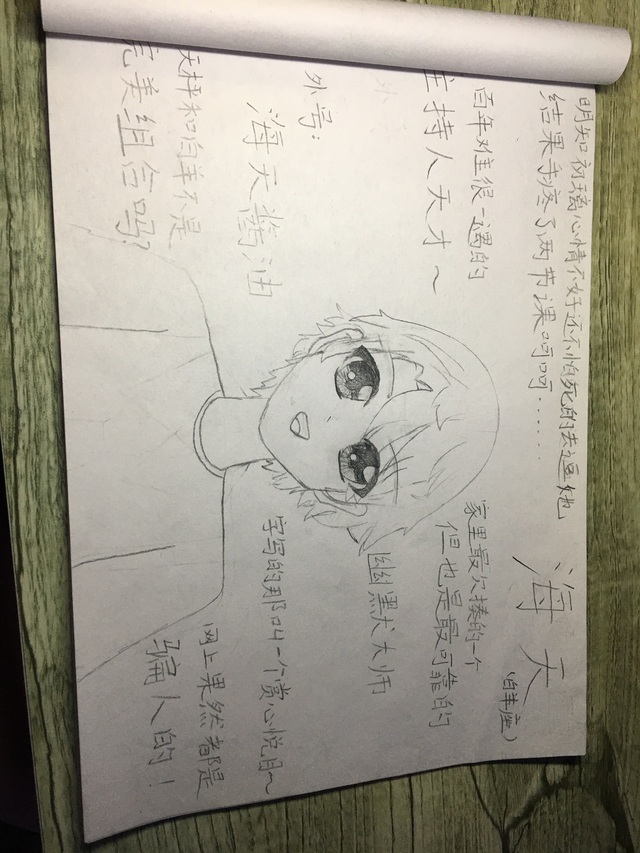 明知初璃心情不好还不怕死的去逗她
结果手疼了两节课呵呵……
海天
(白羊座)
百年难很一遇的
主持人天才～
家里最欠揍的一个
但也是最可靠的
外号：
海天酱油
幽默大师
字写的那叫一个赏心悦目～
天秤和白羊不是
完美组合吗？
网上果然都是
骗人的！